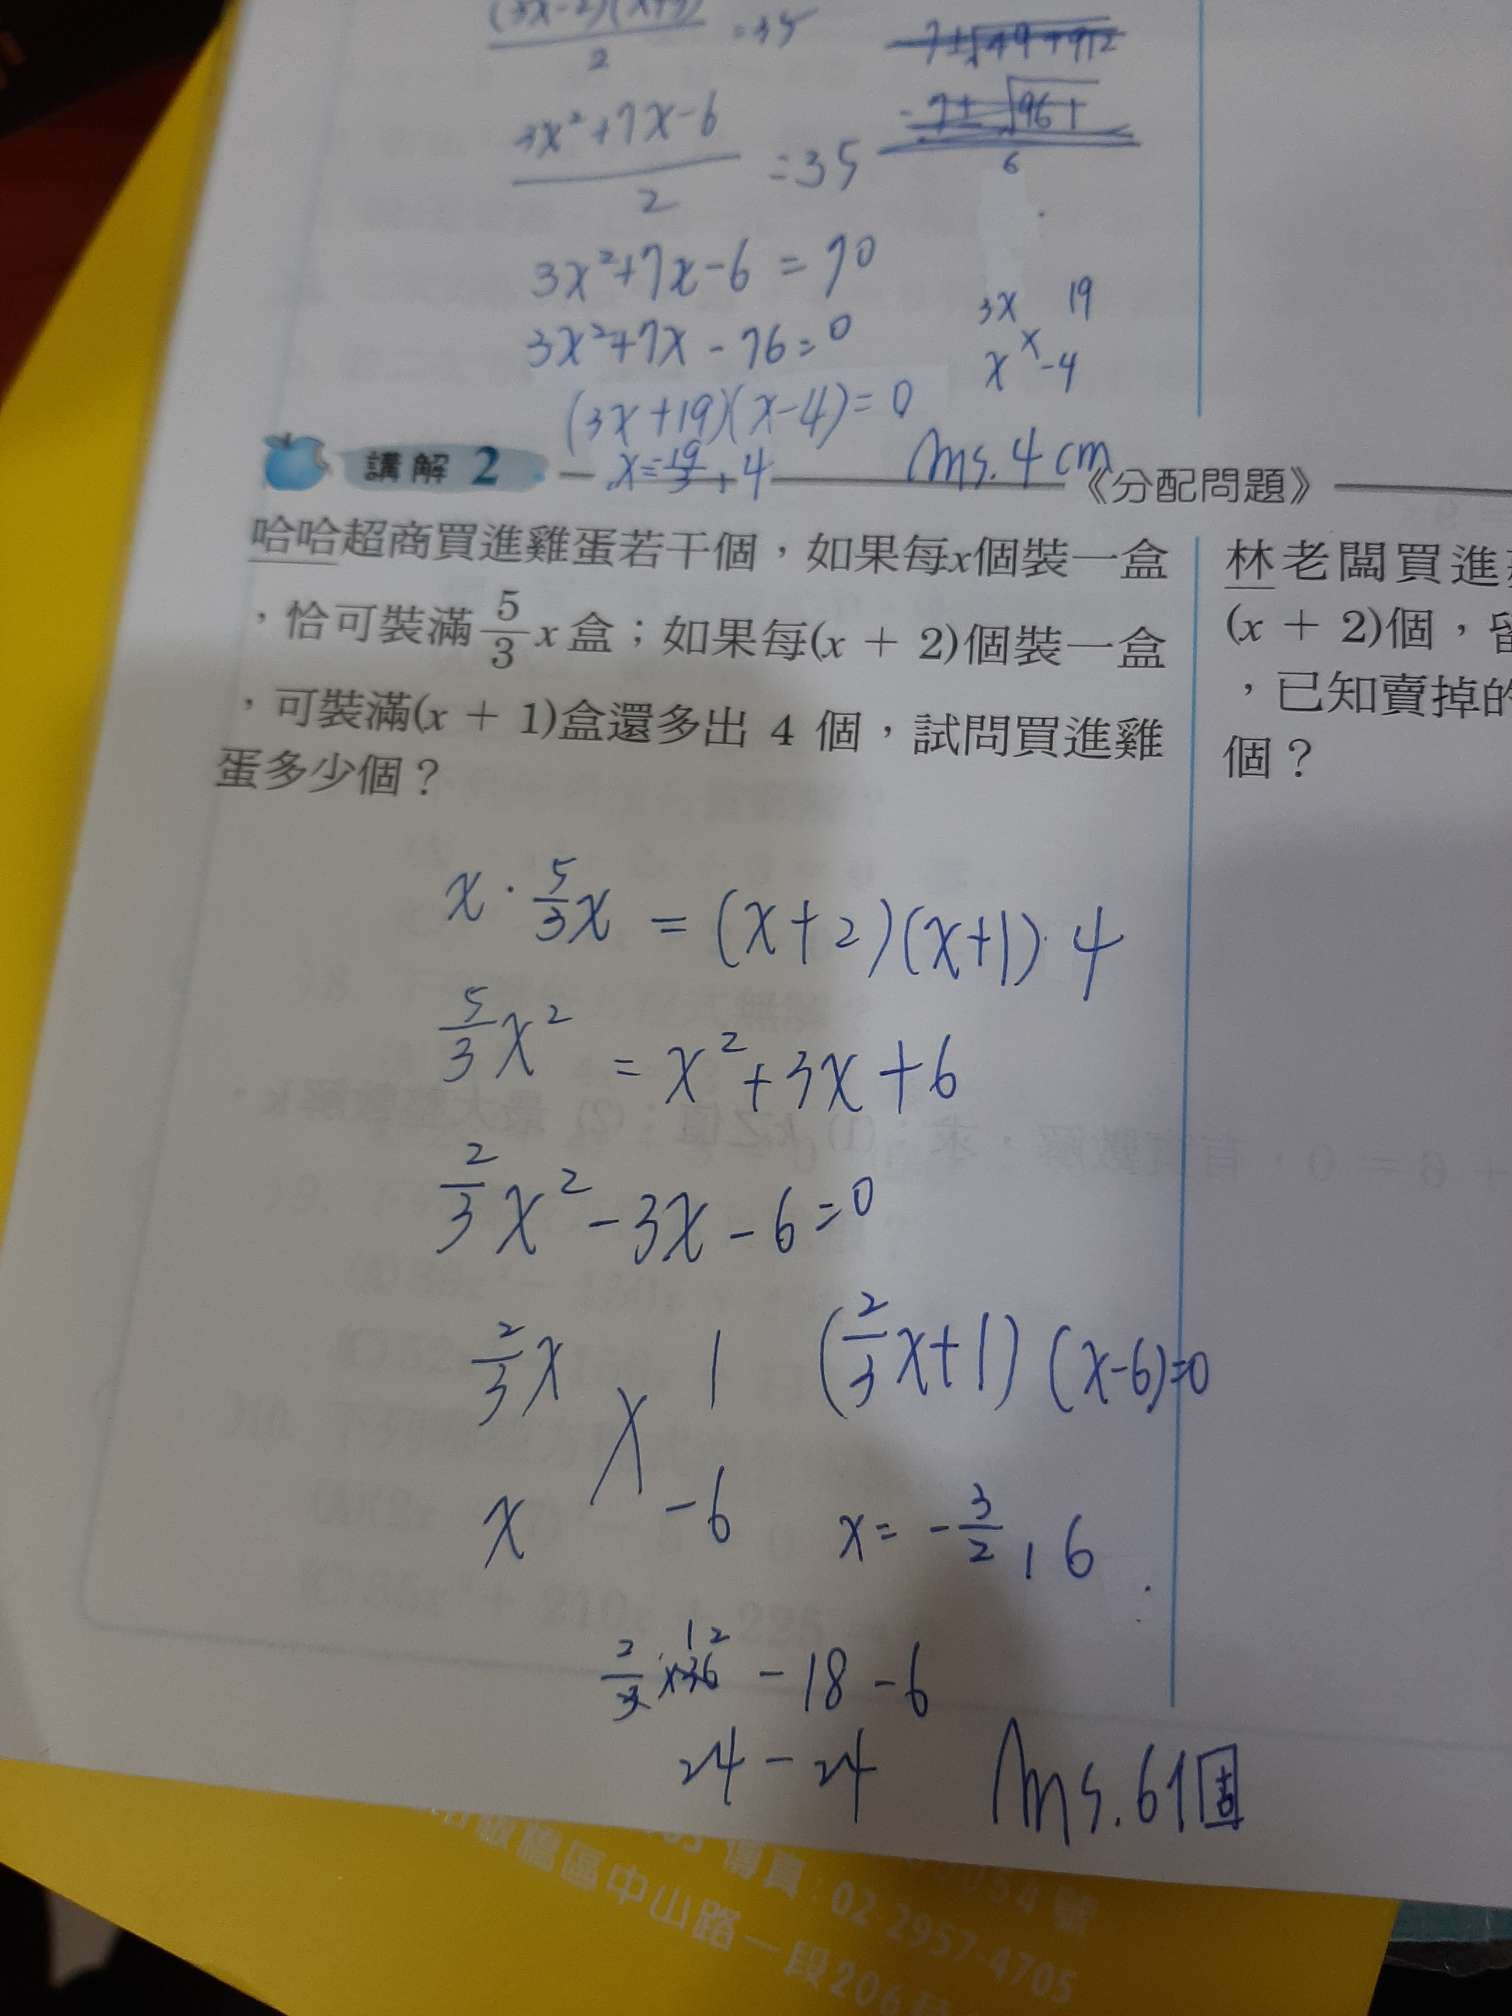 (3x-2)(x+3)/2 = 35
(3x²+7x-6)/2 = 35
6
3x²+7x-6 = 70
3x²+7x-76=0
3x 19
x -4
(3x+19)(x-4)=0
x=-19/3, 4
Ans. 4 cm
講解 2
《分配問題》
哈哈超商買進雞蛋若干個，如果每x個裝一盒
，恰可裝滿5/3 x盒；如果每(x + 2)個裝一盒
，可裝滿(x + 1)盒還多出 4 個，試問買進雞
蛋多少個？
林老闆買進
(x + 2)個，
，已知賣掉的
個？
x·5/3x = (x+2)(x+1)·4
5/3x² = x²+3x+6
2/3x²-3x-6=0
2/3x 1 (2/3x+1)(x-6)=0
x -6 x=-3/2, 6
2/3×36 12 -18-6
24-24
Ans. 6個
傳真：02-2957-4705
054號
板橋區中山路一段206